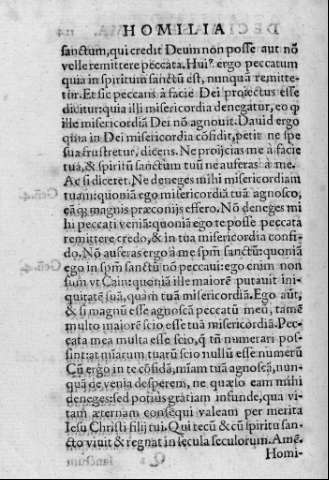 HOMILIA
sanctum, qui credit Deum non posse aut nõ
velle remittere peccata. Huiꝰ ergo peccatum
quia in spiritum sanctũ est, nunquã remitte-
tur. Et sic peccans à facie Dei proiectus esse
dicitur: quia illi misericordia denegatur, eo ꝙ
ille misericordiã Dei nõ agnouit. Dauid ergo
quia in Dei misericordia cõfidit, petit ne spe
sua frustretur, dicens. Ne proijcias me à facie
tua, & spiritũ sanctum tuũ ne auferas à me.
Ac si diceret. Ne deneges mihi misericordiam
tuam: quoniã ego misericordiã tuã agnosco,
eãq; magnis præconijs effero. Nõ deneges mi
hi peccati veniã: quoniã ego te posse peccata
remittere credo, & in tua misericordia confi-
do. Nõ auferas ergo à me spm̃ sanctũ: quoniã
ego in spm̃ sanctũ nõ peccaui: ego enim non
sum vt Cain: quoniã ille maiorẽ putauit ini-
quitatẽ suã, quàm tuã misericordiã. Ego aũt,
& si magnũ esse agnoscã peccatũ meũ, tamẽ
multo maiorẽ scio esse tuã misericordiã. Pec-
cata mea multa esse scio, ꝙ tñ numerari pos-
sint: at miarum tuarũ scio nullũ esse numerũ
Cũ ergo in te cõfidã, miam tuã agnoscã, nun-
quã de venia desperem, ne quæso eam mihi
deneges: sed potius gratiam infunde, qua vi-
tam æternam consequi valeam per merita
Iesu Christi filij tui. Qui tecũ & cũ spiritu san-
cto viuit & regnat in secula seculorum. Amẽ.
Homi-